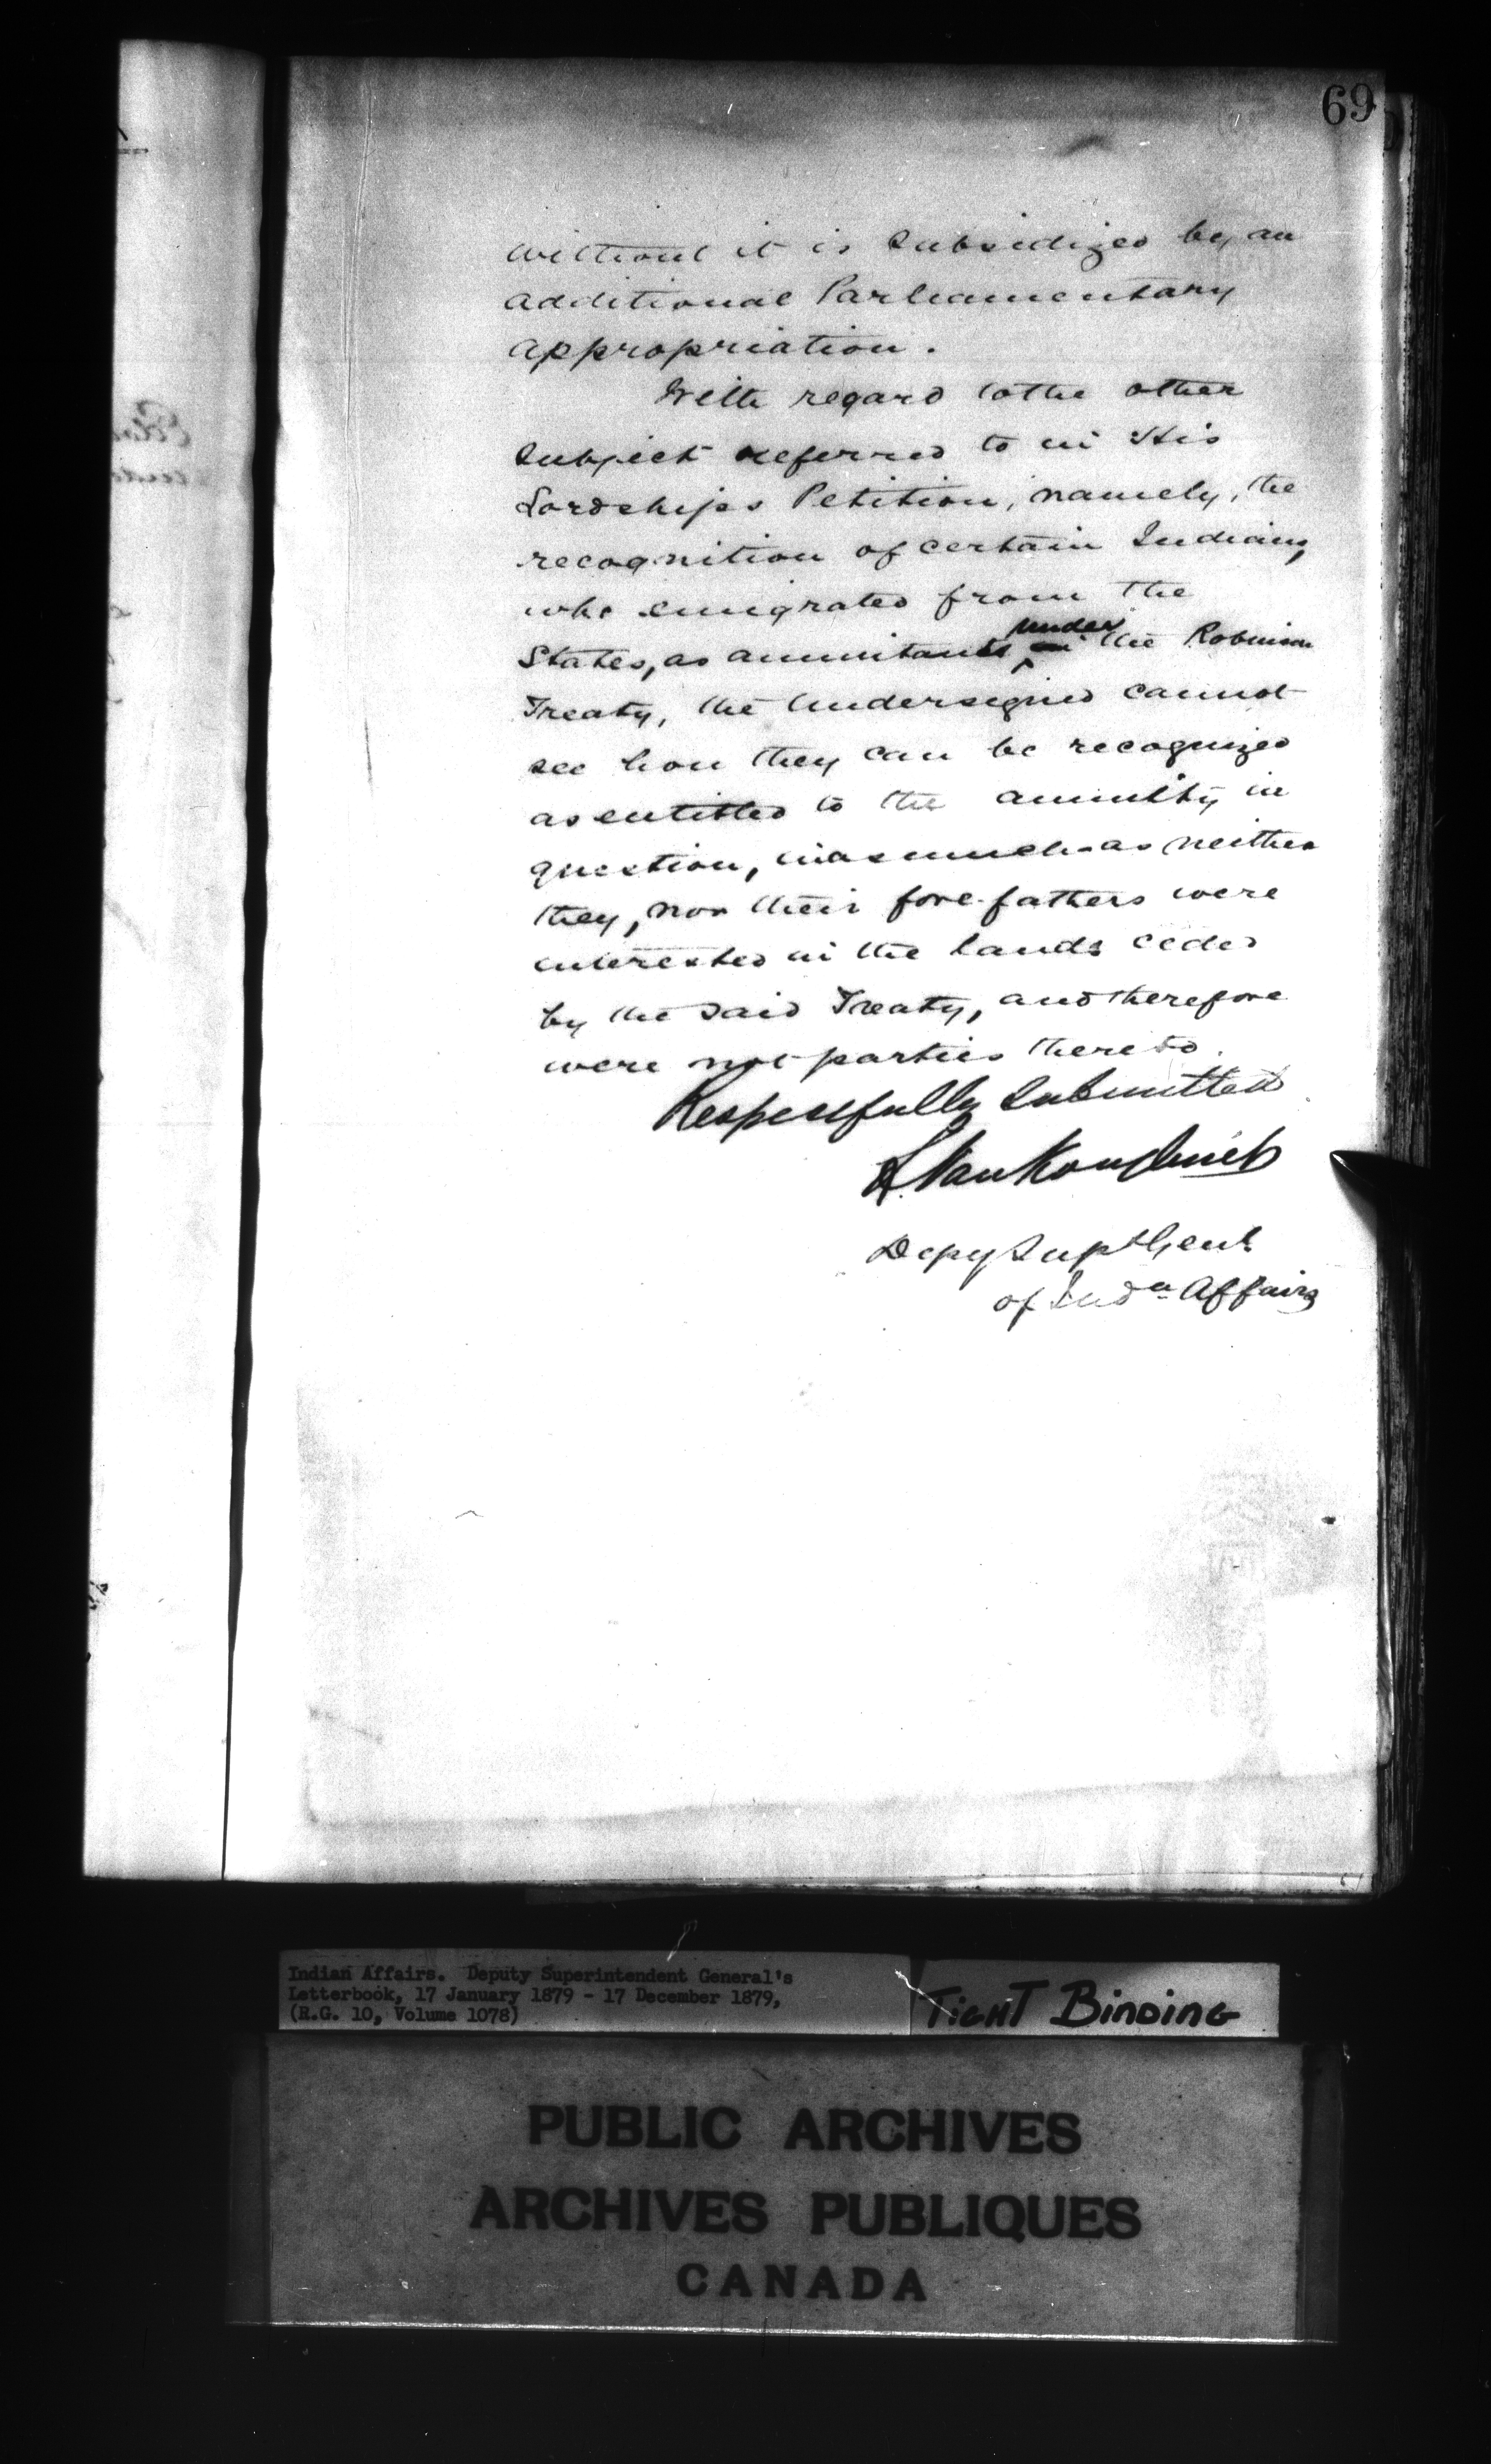 69
without it is subsidized by an
additional Parliamentary
appropriation.
With regard to the other
subject referred to in His
Lordships Petition, namely, the
recognition of certain Indians,
who emigrated from the
under
States, as annuitants in the Robinson
Treaty, the Undersigned cannot
see how they can be recognized
as entitled to the annuity in
question, inasmuch as neither
they, nor their fore-fathers were
interested in the lands ceded
by the said Treaty, and therefore
were not parties thereto.
Respectfully submitted
L. VanKoughnet
Depy Supt Genl.
of Indn Affairs
Indian Affairs. Deputy Superintendent General's
Letterbook, 17 January 1879 - 17 December 1879,
(R.G. 10, Volume 1078)
TIGHT BINDING
PUBLIC ARCHIVES
ARCHIVES PUBLIQUES
CANADA